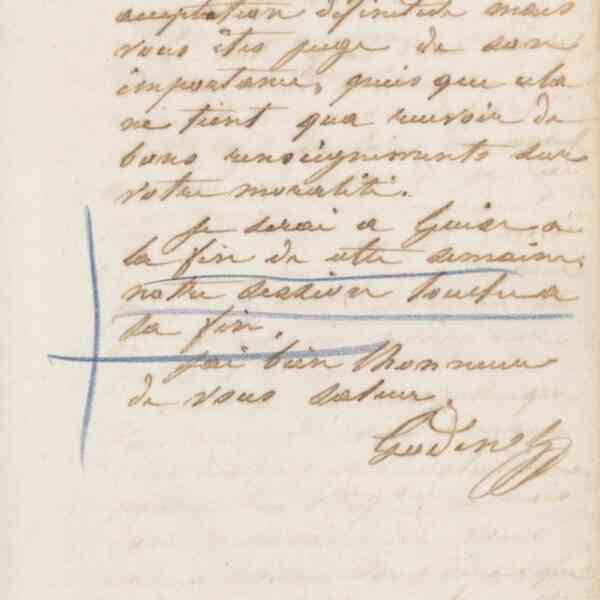 acceptation définitive mais
vous êtes juge de son
importance, puis que cela
ne tient qua recevoir de
bons renseignements sur
votre moralité.
Je serai a Guise a
la fin de cette semaine.
notre session touche a
sa fin.
Jai bien lhonneur
de vous saluer.
Godin